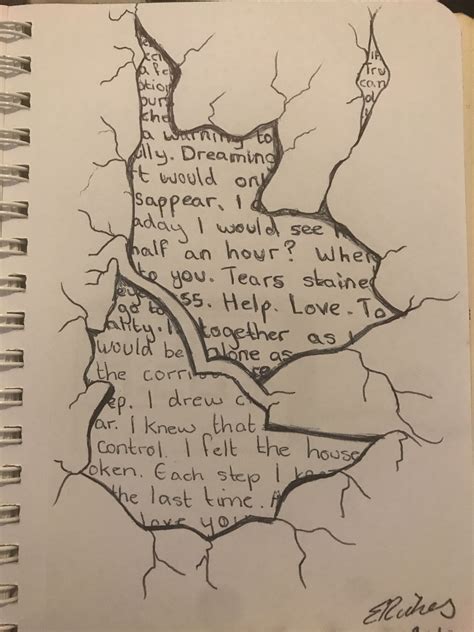 a warning to
ully. Dreaming
t would on
sappear. I
aday I would see
half an hour? When
to you. Tears staine
55. Help. Love. To
ality. together as
would be alone as
the corri
ep. I drew c
ar. I knew that
control. I felt the house
oken. Each step I
the last time. A
love you
In
Tru
can
d
ERiches